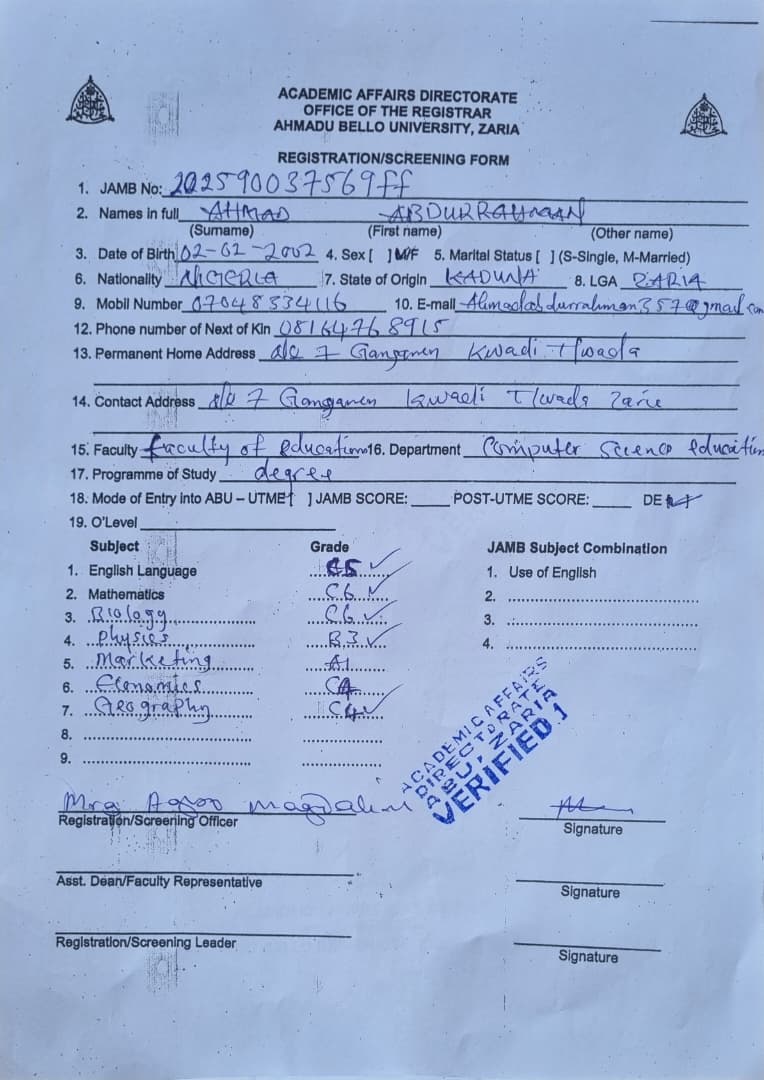 ACADEMIC AFFAIRS DIRECTORATE
OFFICE OF THE REGISTRAR
AHMADU BELLO UNIVERSITY, ZARIA
REGISTRATION/SCREENING FORM
1. JAMB No: 202590037569ff
2. Names in full AHMAD ABDURRAHMAN
(Surname) (First name) (Other name)
3. Date of Birth 02-02-2002 4. Sex [ ] M/F 5. Marital Status [ ] (S-Single, M-Married)
6. Nationality NIGERIA 7. State of Origin KADUNA 8. LGA ZARIA
9. Mobil Number 07048334116 10. E-mail Ahmadabdurrahman357@gmail.com
12. Phone number of Next of Kin 08164768915
13. Permanent Home Address 7 Gangaren Kwadi T/wada
14. Contact Address 7 Gangaren Kwadi T/wada Zaria
15. Faculty faculty of education 16. Department Computer Science education
17. Programme of Study degree
18. Mode of Entry into ABU – UTME [ ] JAMB SCORE: ____ POST-UTME SCORE: ____ DE
19. O'Level
Subject Grade JAMB Subject Combination
1. English Language 1. Use of English
2. Mathematics C6 2.
3. Biology C6 3.
4. Physics B3 4.
5. Marketing A1
6. Economics C4
7. Geography C4
8.
9.
ACADEMIC AFFAIRS
DIRECTORATE
ABU, ZARIA
VERIFIED 1
Mrs Magdalin
Registration/Screening Officer Signature
Asst. Dean/Faculty Representative Signature
Registration/Screening Leader Signature